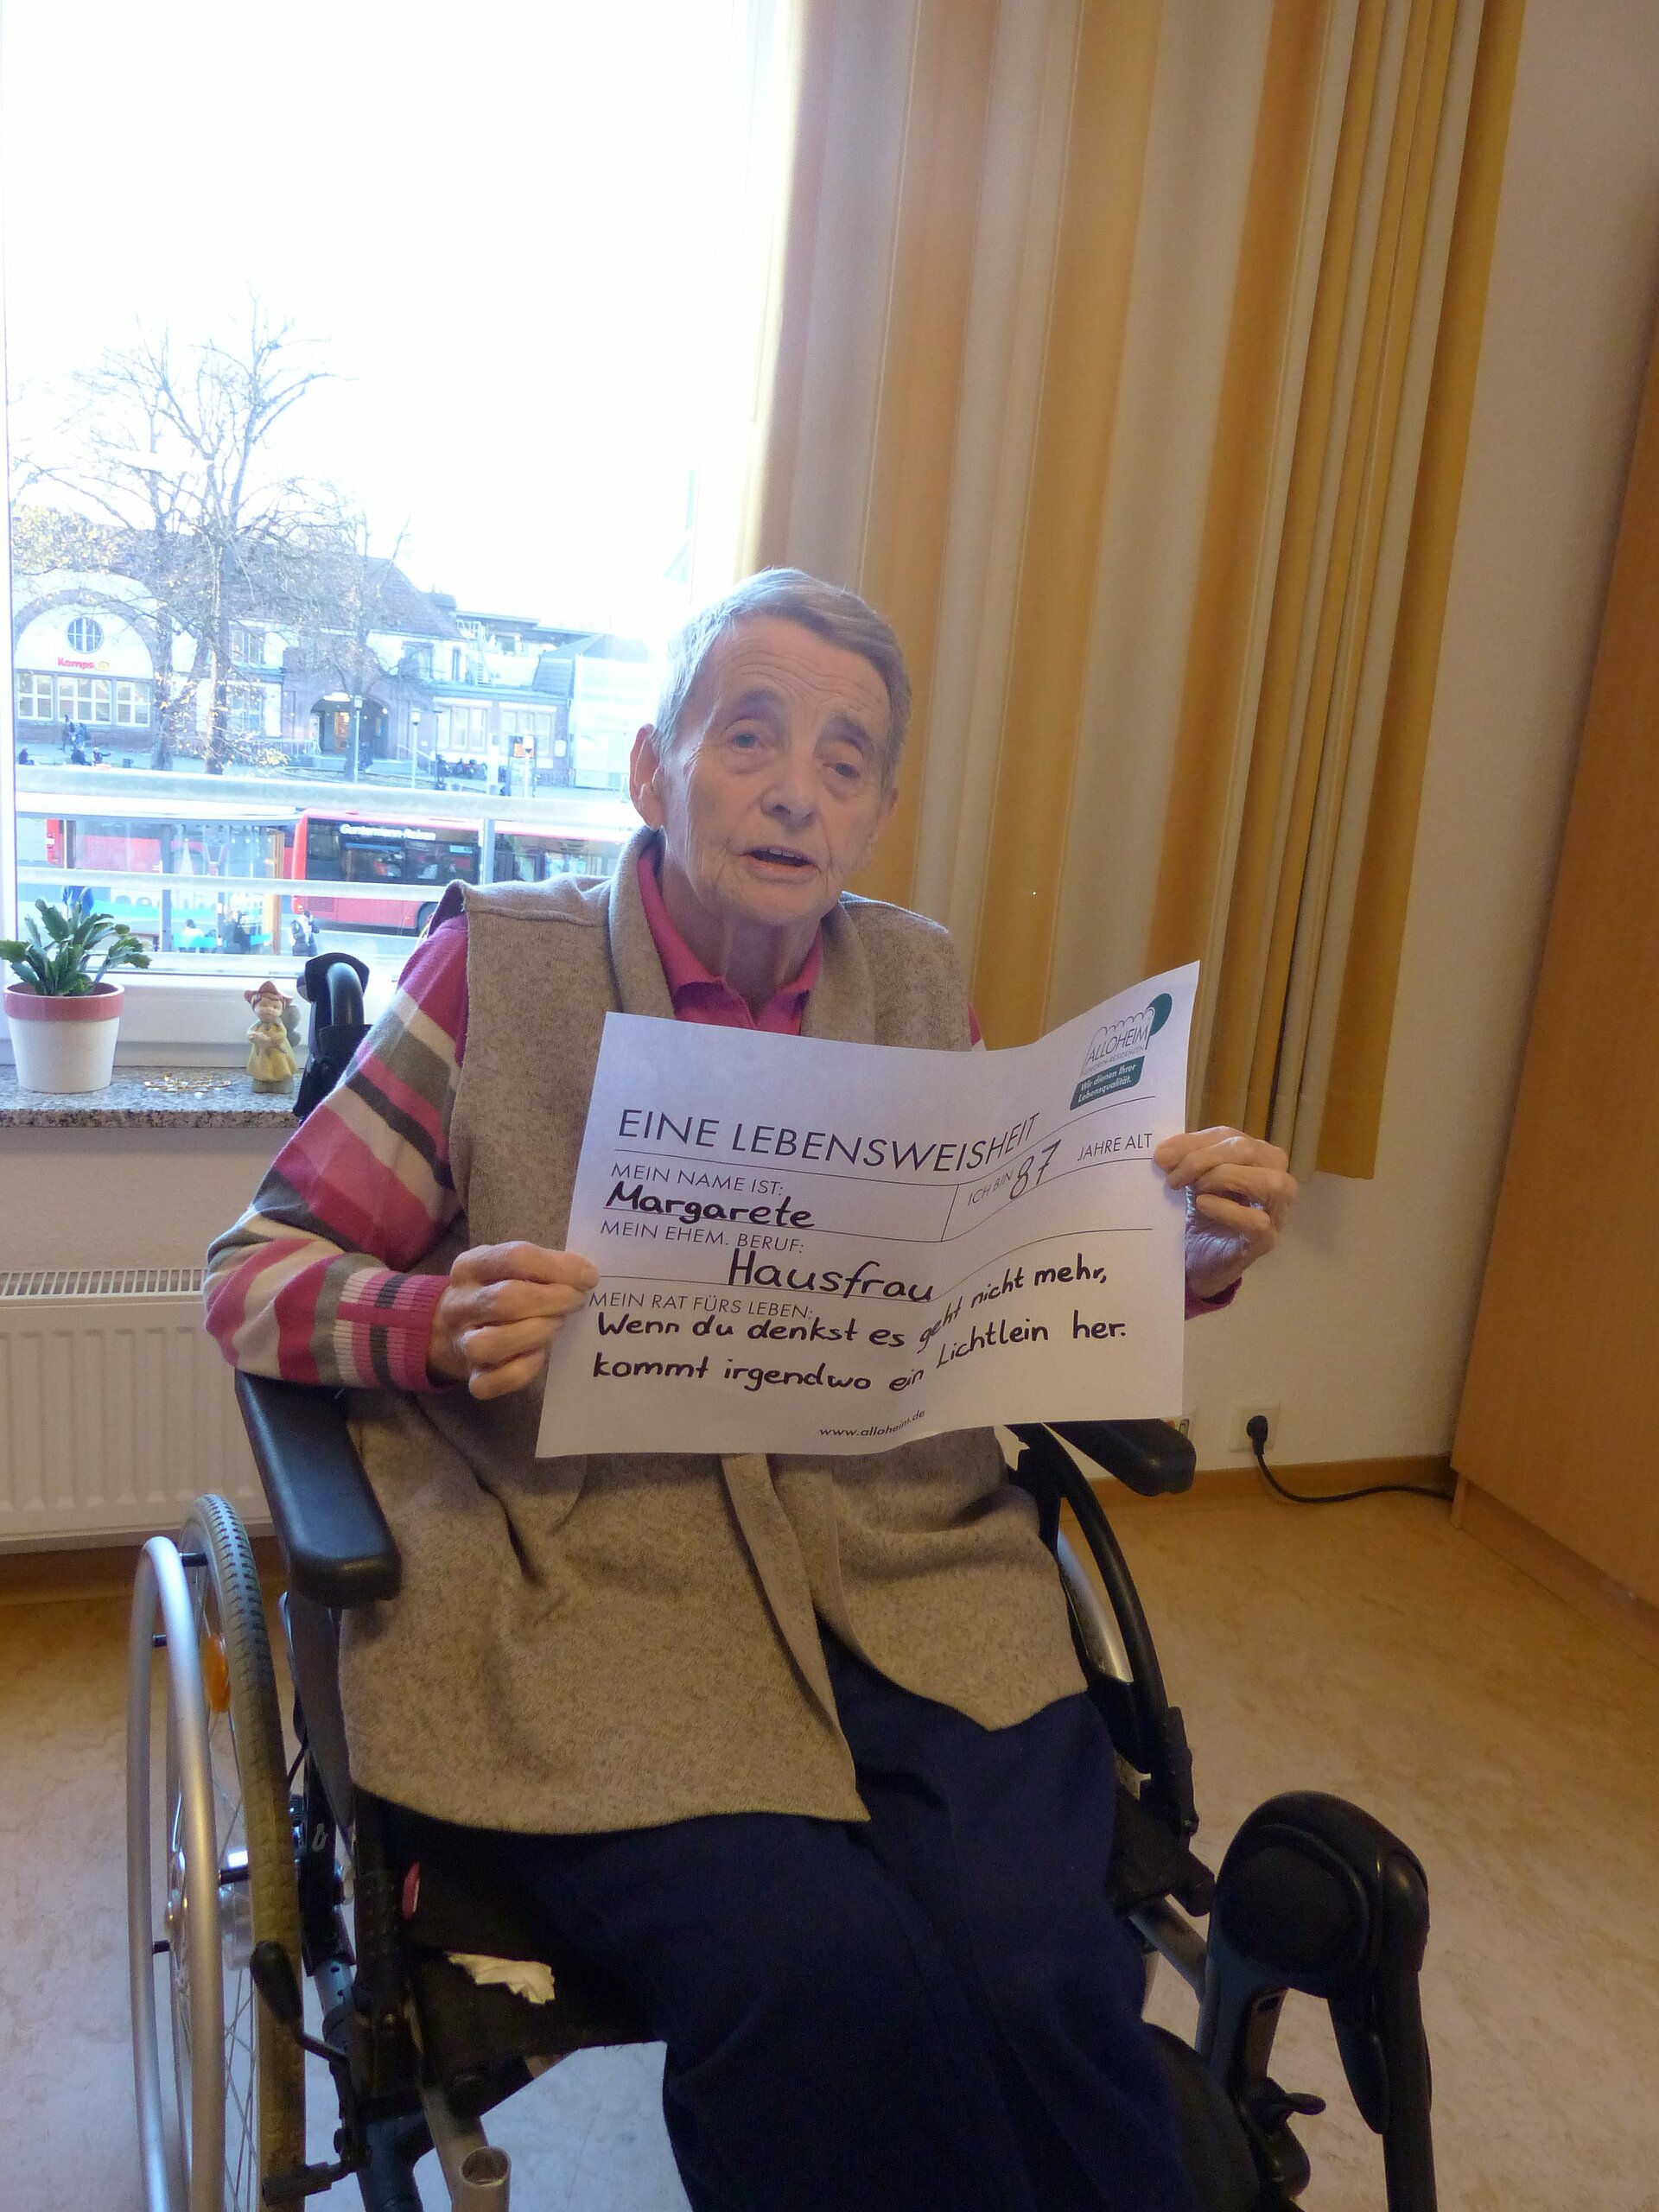 Kamps
ALLOHEIM
SENIOREN-RESIDENZEN
Wir dienen Ihrer
Lebensqualität.
EINE LEBENSWEISHEIT
MEIN NAME IST:
Margarete
ICH BIN 87 JAHRE ALT
MEIN EHEM. BERUF:
Hausfrau
MEIN RAT FÜRS LEBEN:
Wenn du denkst es geht nicht mehr,
kommt irgendwo ein Lichtlein her.
www.alloheim.de